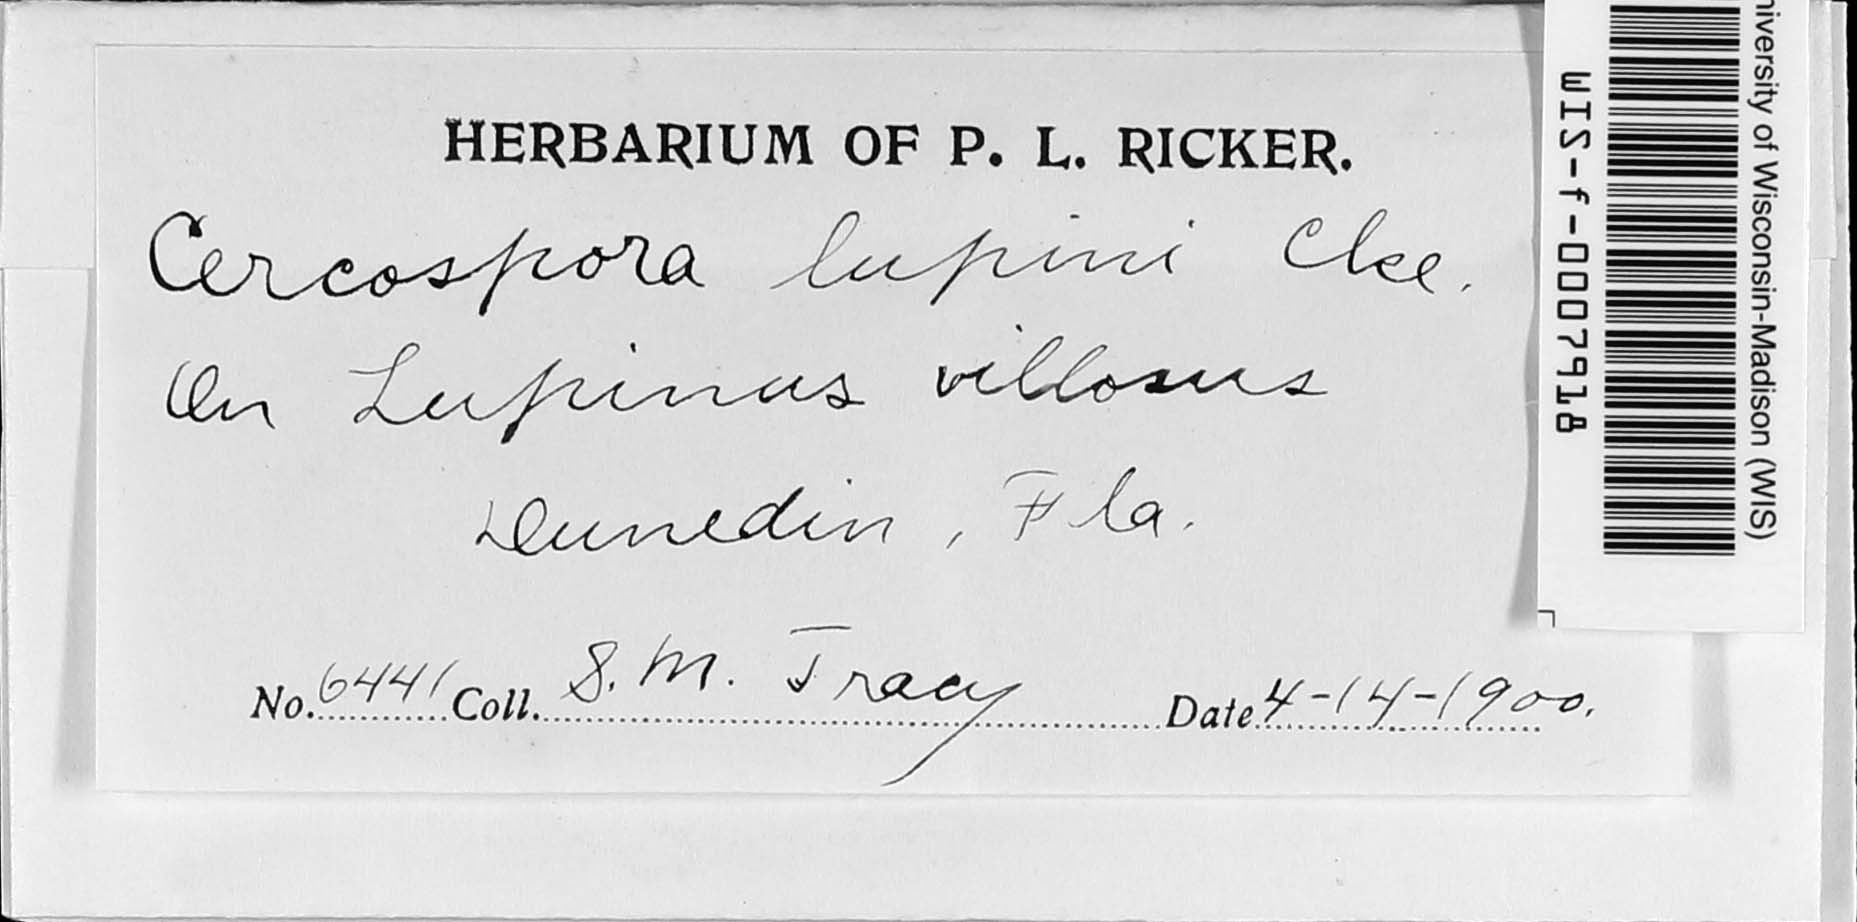 HERBARIUM OF P. L. RICKER.
Cercospora lupini Cke.
On Lupinus villosus
Dunedin, Fla.
No. 6441 Coll. S. M. Tracy Date 4-14-1900.
WIS-f-0007918
niversity of Wisconsin-Madison (WIS)